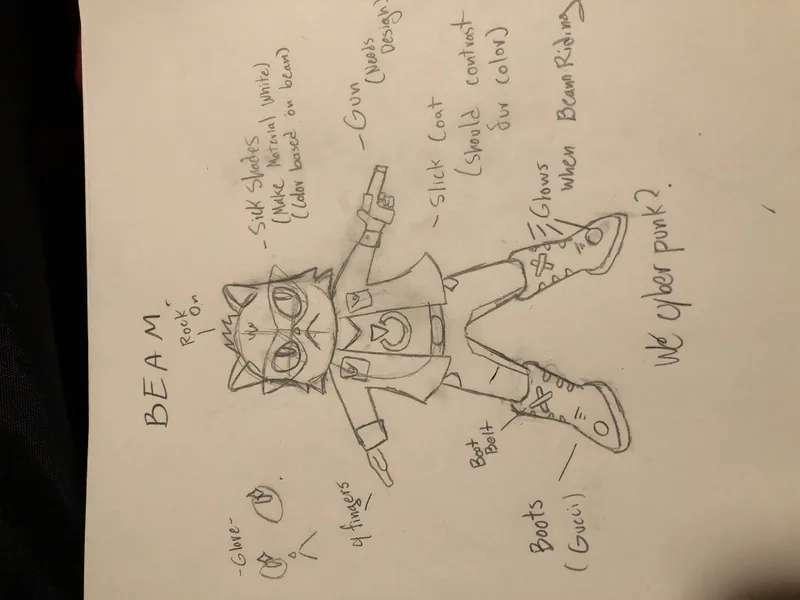 BEAM
Rock
On
-Glove-
- Sick Shades
(Make Material White)
(Color based on beam)
4 fingers
- Gun
(Needs
Design)
- Slick Coat
(Should contrast
fur color)
Boot
Glows
when Beam Riding
Boots
(Gucci)
We cyber punk?